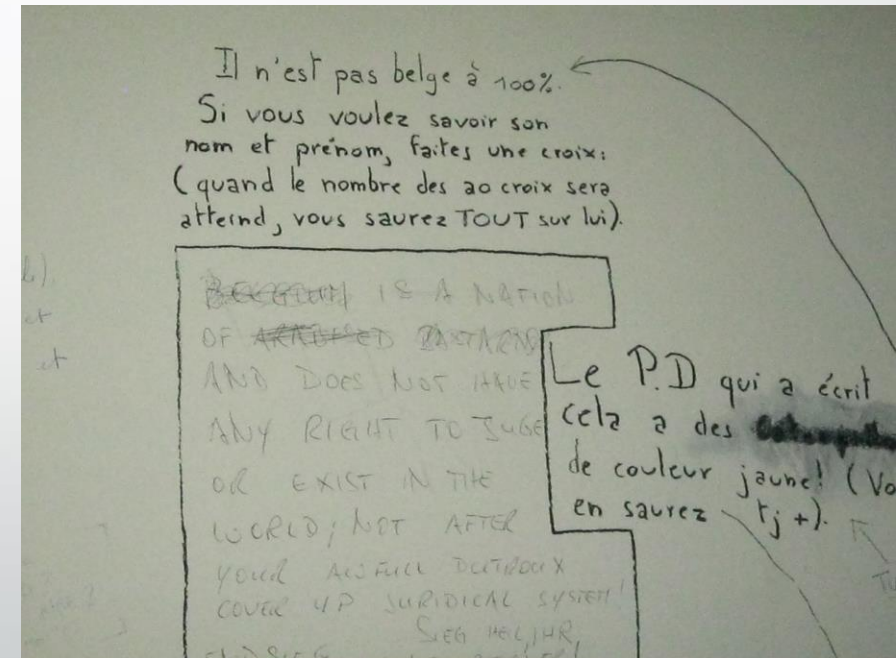 Il n'est pas belge à 100%.
Si vous voulez savoir son
nom et prénom, faites une croix:
(quand le nombre des 20 croix sera
atteind, vous saurez TOUT sur lui).
IS A NATION
OF BASTARDS
AND DOES NOT HAVE
ANY RIGHT TO JUGE
OR EXIST IN THE
WORLD; NOT AFTER
YOUR AWFULL DUTROUX
COVER UP JURIDICAL SYSTEM!
SIEG HEIL, HR,
Le P.D qui a écrit
cela a des
de couleur jaune! (Vo
en saurez tj +).
et
et